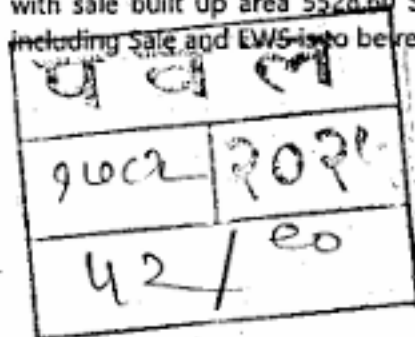 with sale built up area 5528.60 S
including Sale and EWS is to be re
प व ल
१७८२ २०२१
५२/९०